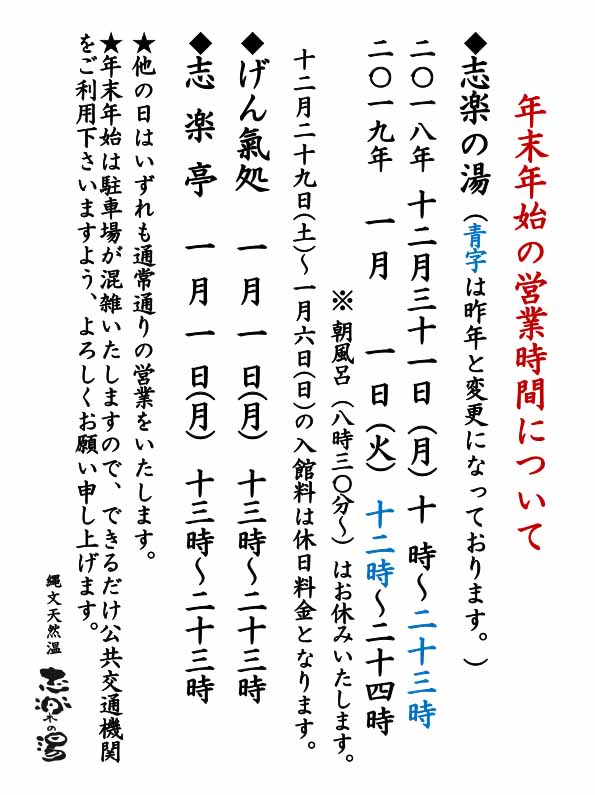 年末年始の営業時間について
◆志楽の湯（青字は昨年と変更になっております。）
二〇一八年 十二月三十一日（月）十 時～二十三時
二〇一九年 一 月 一 日（火）十二時～二十四時
※ 朝風呂（八時三〇分～）はお休みいたします。
十二月二十九日（土）～一月六日（日）の入館料は休日料金となります。
◆げん氣処 一 月 一 日（月） 十三時～二十三時
◆志 楽 亭 一 月 一 日（月） 十三時～二十三時
★他の日はいずれも通常通りの営業をいたします。
★年末年始は駐車場が混雑いたしますので、できるだけ公共交通機関
をご利用下さいますよう、よろしくお願い申し上げます。
縄文天然温
志楽の湯